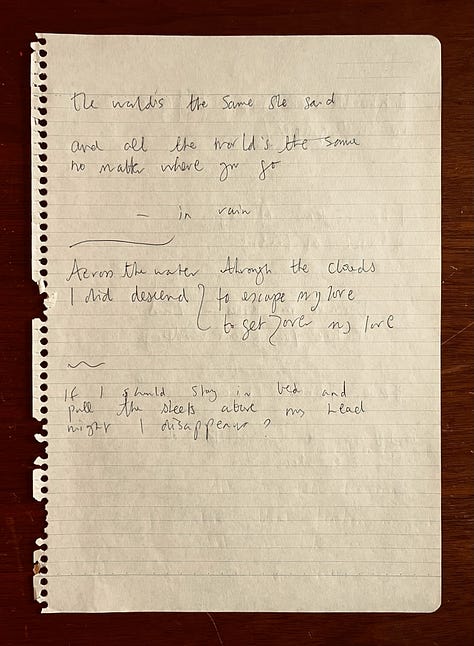 the world's the same she said
and all the world's the same
no matter where you go
— in rain
Across the water through the clouds
I did descend } to escape my love
to get } over my love
If I should stay in bed and
pull the sheets above my head
might I disappear?